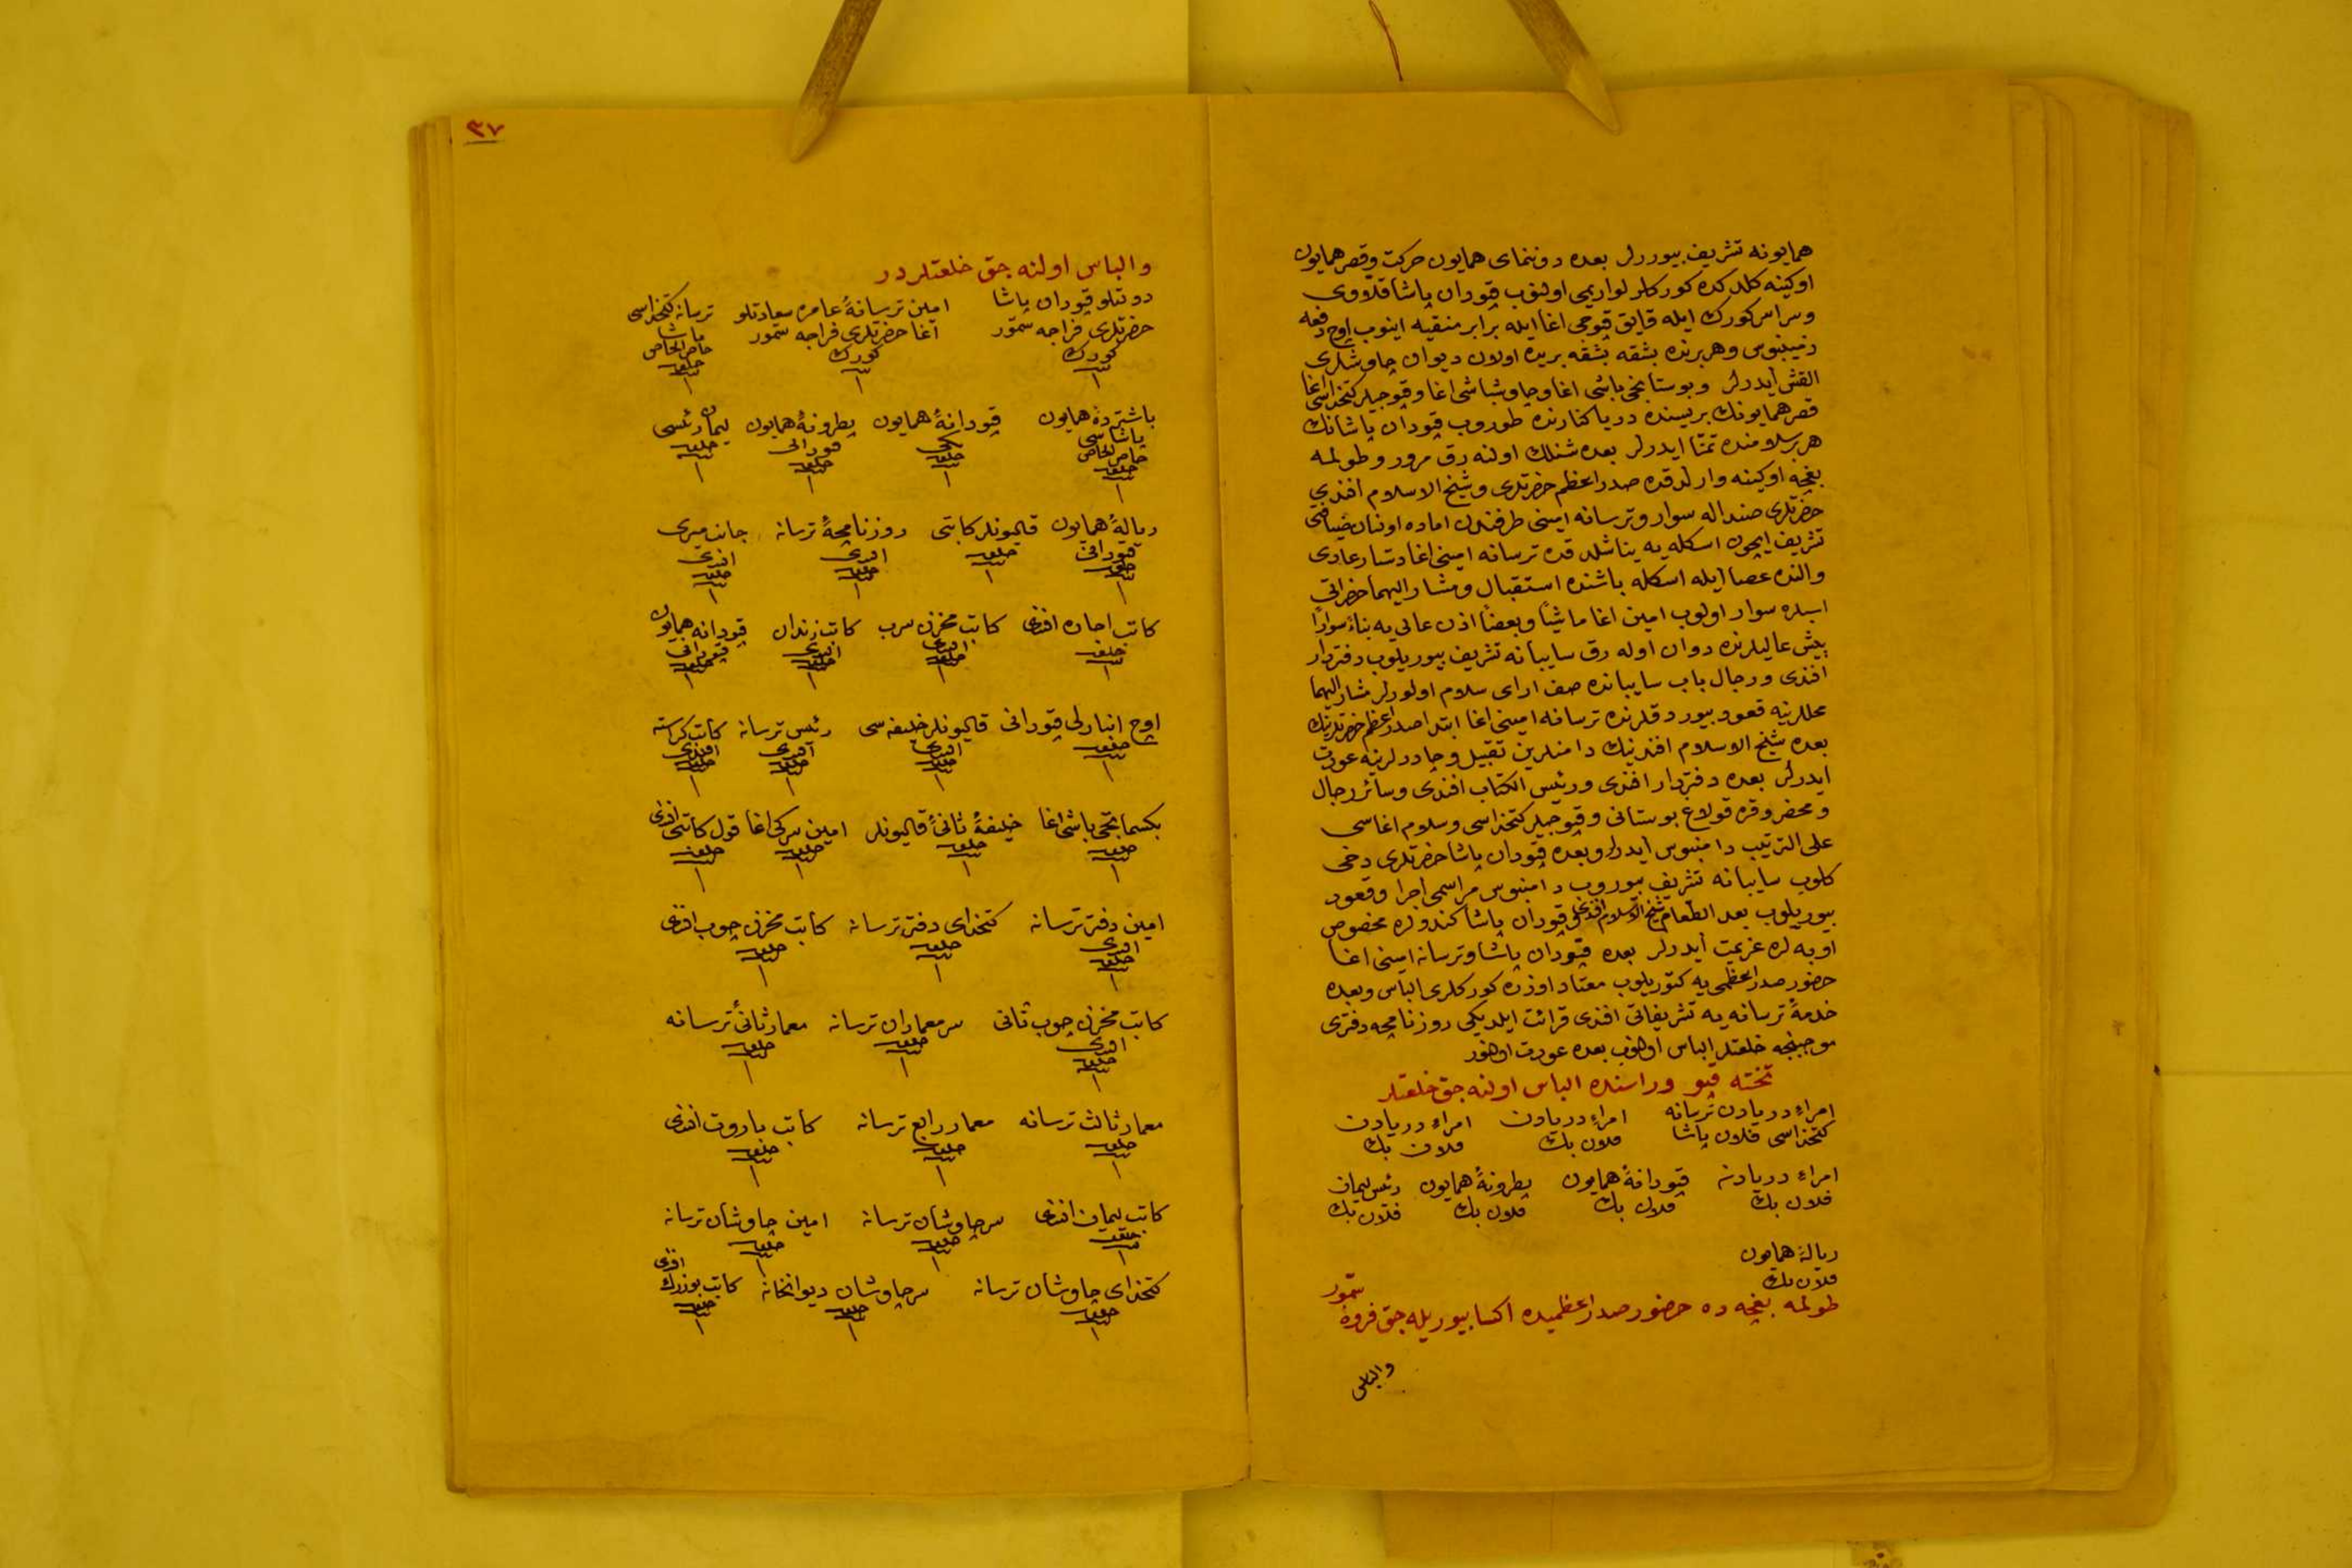 همایونه تشریف بیوررلر بعده دوننمای همایون حرکت وقصر همایون
اوکینه کلدکده کورکلر لواریمی اولنوب قپودان پاشا قلاووی
وسراسر کورک ایله قایق قپوجی اغا ایله برابر منقیه اینوب اوچ دفعه
زمینبوس وهر برنده بشقه بشقه بریده اولان دیوان چاوشلری
القش ایدرلر وبوستانجی باشی اغا وچاوشباشی اغا وقپوجیلر کتخداسی اغا
قصر همایونك بریسنده دریا کنارنده طوروب قپودان پاشانك
هر بر سلامنده تمنا ایدرلر بعده شنلك اولنه رق مرور وطولمه
بغچه اوکینه وارلدقده صدراعظم حضرتلری وشیخ الاسلام افندی
حضرتلری صنداله سوار وترسانه امینی طرفندن اماده اولنان ضیافتی
تشریف ایچون اسکله یه یناشلدقده ترسانه امینی اغا دستار عادی
والنده عصا ایله اسکله باشنده استقبال ومشار الیهما حضراتی
اسبلره سوار اولوب امین اغا ماشیا وبعضا اذن عالی یه بناء سوارا
پیش عالیلرنده دوان اوله رق سایبانه تشریف بیوریلوب دفتردار
افندی ورجال باب سایبانده صف ارای سلام اولورلر مشار الیهما
محللرینه قعود بیوردقلرنده ترسانه امینی اغا ابتدا صدراعظم حضرتلرینك
بعده شیخ الاسلام افندینك دامنلرین تقبیل وچادرلرینه عودت
ایدرلر بعده دفتردار افندی ورئیس الکتاب افندی وسائر رجال
ومحضر وقره قولاغ بوستانی وقپوجیلر کتخداسی وسلام اغاسی
علی الترتیب دامنبوس ایدرلر وبعده قپودان پاشا حضرتلری دخی
کلوب سایبانه تشریف بیوروب دامنبوس مراسمی اجرا وقعود
بیوریلوب بعد الطعام شیخ الاسلام افندی وقپودان پاشا کندولره مخصوص
اوبه لره عزیمت ایدرلر بعده قپودان پاشا وترسانه امینی اغا
حضور صدراعظمی یه کتوریلوب معتاد اوزره کورکلری الباس وبعده
خدمهٔ ترسانه یه تشریفاتی افندی قرائت ایلدیکی روزنامچه دفتری
موجبنجه خلعتلر الباس اولنوب بعده عودت اولنور
تخته قپو وراسنده الباس اولنه جق خلعتلر
امراء دریادن ترسانه کتخداسی فلان پاشا
امراء دریادن فلان بك
امراء دریادن فلان بك
امراء دریادنه فلان بك
قپودانهٔ همایون فلان بك
پطرونهٔ همایون فلان بك
رئیس لیمان فلان بك
ریالهٔ همایون
فلان بك
طولمه بغچه ده حضور صدراعظمیده اکسا بیوریله جق فروهٔ سمور
والباس
٣٧
والباس اولنه جق خلعتلردر
دولتلو قپودان پاشا حضرتلری فراجه سمور کورك ١
امین ترسانهٔ عامره سعادتلو اغا حضرتلری فراجه سمور کورك ١
ترسانه کتخداسی پاشا خاص الخاص خلعت ١
باشترده همایون پاشاسی خاص الخاص خلعت ١
قپودانهٔ همایون بکی خلعت ١
پطرونهٔ همایون قپودانی خلعت ١
لیمان رئیسی خلعت ١
ریالهٔ همایون قپودانی خلعت ١
قالیونلر کاتبی خلعت ١
روزنامچهٔ ترسانه افندی خلعت ١
جانب میری افندی خلعت ١
کاتب اجاره افندی خلعت ١
کاتب مخزن سرب افندی خلعت ١
کاتب زندان افندی خلعت ١
قپودانه همایون قپودانی خلعت ١
اوچ انبارلی قپودانی خلعت ١
قالیونلر خلیفه سی افندی خلعت ١
رئیس ترسانه افندی خلعت ١
کاتب کراسته افندی خلعت ١
بکسماتجی باشی اغا خلعت ١
خلیفهٔ ثانیٔ قالیونلر خلعت ١
امین سرکی اغا خلعت ١
قول کاتبی افندی خلعت ١
امین دفتر ترسانه افندی خلعت ١
کتخدای دفتر ترسانه خلعت ١
کاتب مخزن چوب افندی خلعت ١
کاتب مخزن چوب ثانی افندی خلعت ١
سر معماران ترسانه خلعت ١
معمار ثانیٔ ترسانه خلعت ١
معمار ثالث ترسانه خلعت ١
معمار رابع ترسانه خلعت ١
کاتب باروت افندی خلعت ١
کاتب لیمان افندی خلعت ١
سرچاوشان ترسانه خلعت ١
امین چاوشان ترسانه خلعت ١
کتخدای چاوشان ترسانه خلعت ١
سرچاوشان دیوانخانه خلعت ١
کاتب بوزرك افندی خلعت ١